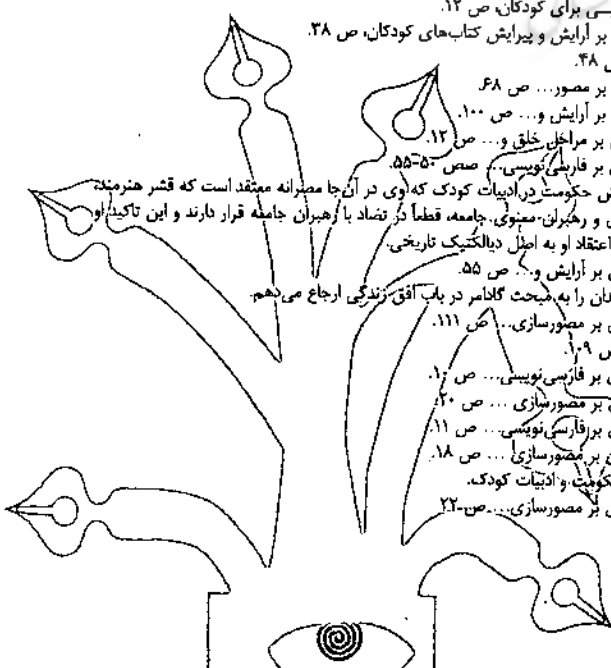 سی برای کودکان، ص ۱۲.
بر آرایش و پیرایش کتاب‌های کودکان، ص ۳۸.
ص ۴۸.
بر مصور... ص ۶۸.
بر آرایش و... ص ۱۰۰.
بر مراحل خلق و... ص ۱۲.
بر فارسی‌نویسی... صص ۵۰-۵۵.
ش حکومت در ادبیات کودک که وی در آن‌جا مصرانه معتقد است که قشر هنرمند،
و رهبران معنوی جامعه، قطعاً در تضاد با رهبران جامعه قرار دارند و این تاکید او
اعتقاد او به اصل دیالکتیک تاریخی.
بر آرایش و... ص ۵۵.
دان را به مبحث گادامر در باب افق زندگی ارجاع می‌دهم.
بر مصورسازی... ص ۱۱۱.
ص ۱۰۹.
بر فارسی‌نویسی... ص ۱۰.
بر مصورسازی ... ص ۲۰.
بر فارسی‌نویسی... ص ۱۱.
بر مصورسازی ... ص ۱۸.
حکومت و ادبیات کودک.
بر مصورسازی... ص ۲۲